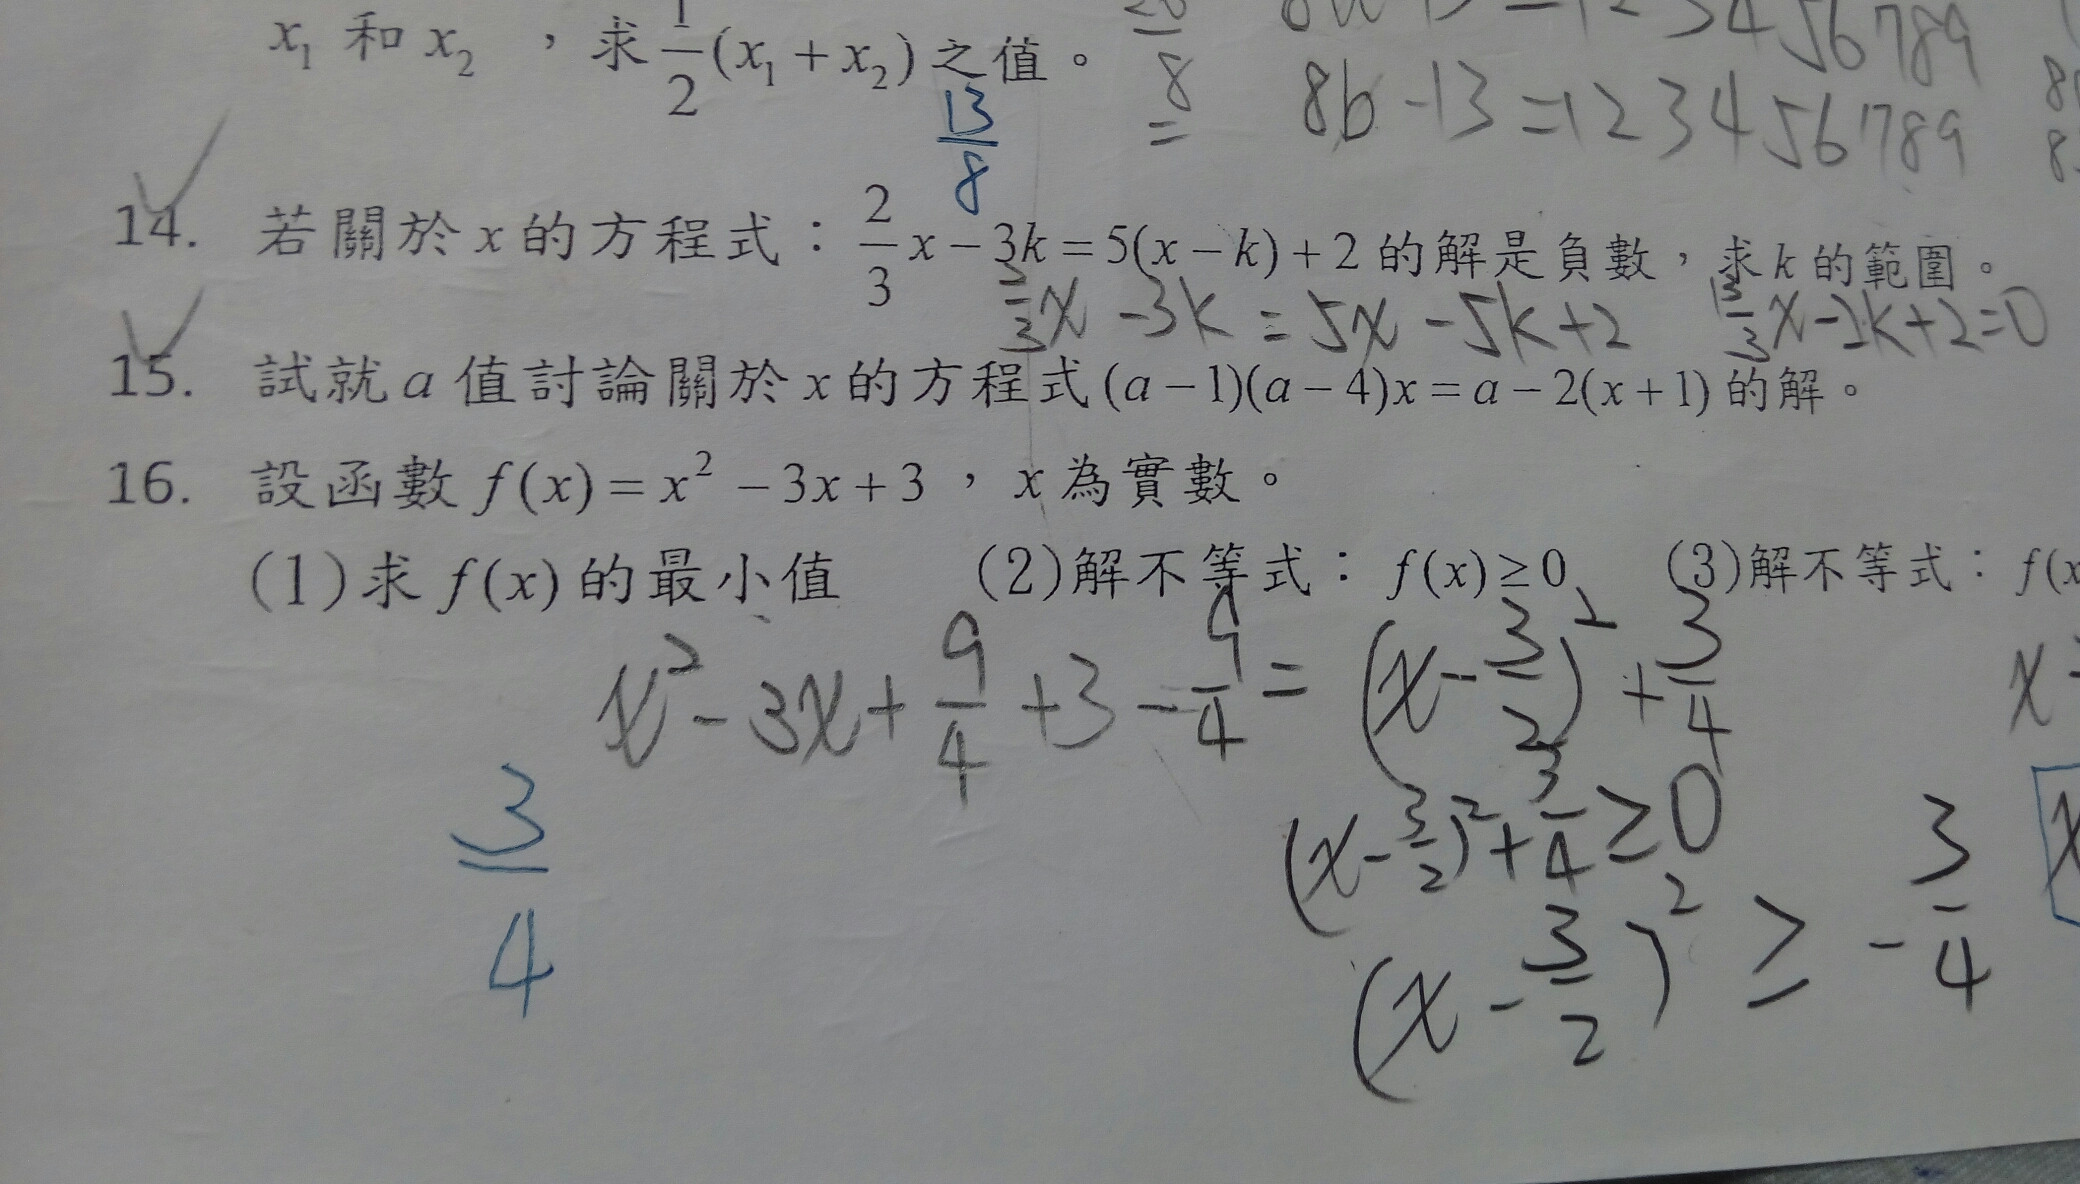 x₁ 和 x₂ ，求 1/2(x₁ + x₂) 之值。
13/8
8
=
8b - 13 = 123456789
14. 若關於 x 的方程式：2/3 x − 3k = 5(x − k) + 2 的解是負數，求 k 的範圍。
2/3 x - 3k = 5x - 5k + 2
13/3 x - 2k + 2 = 0
15. 試就 a 值討論關於 x 的方程式 (a − 1)(a − 4)x = a − 2(x + 1) 的解。
16. 設函數 f(x) = x² − 3x + 3 ，x 為實數。
(1)求 f(x) 的最小值 (2)解不等式：f(x) ≥ 0 (3)解不等式：f(x
x² - 3x + 9/4 + 3 - 9/4 = (x - 3/2)² + 3/4
3/4
(x - 3/2)² + 3/4 ≥ 0
(x - 3/2)² ≥ -3/4